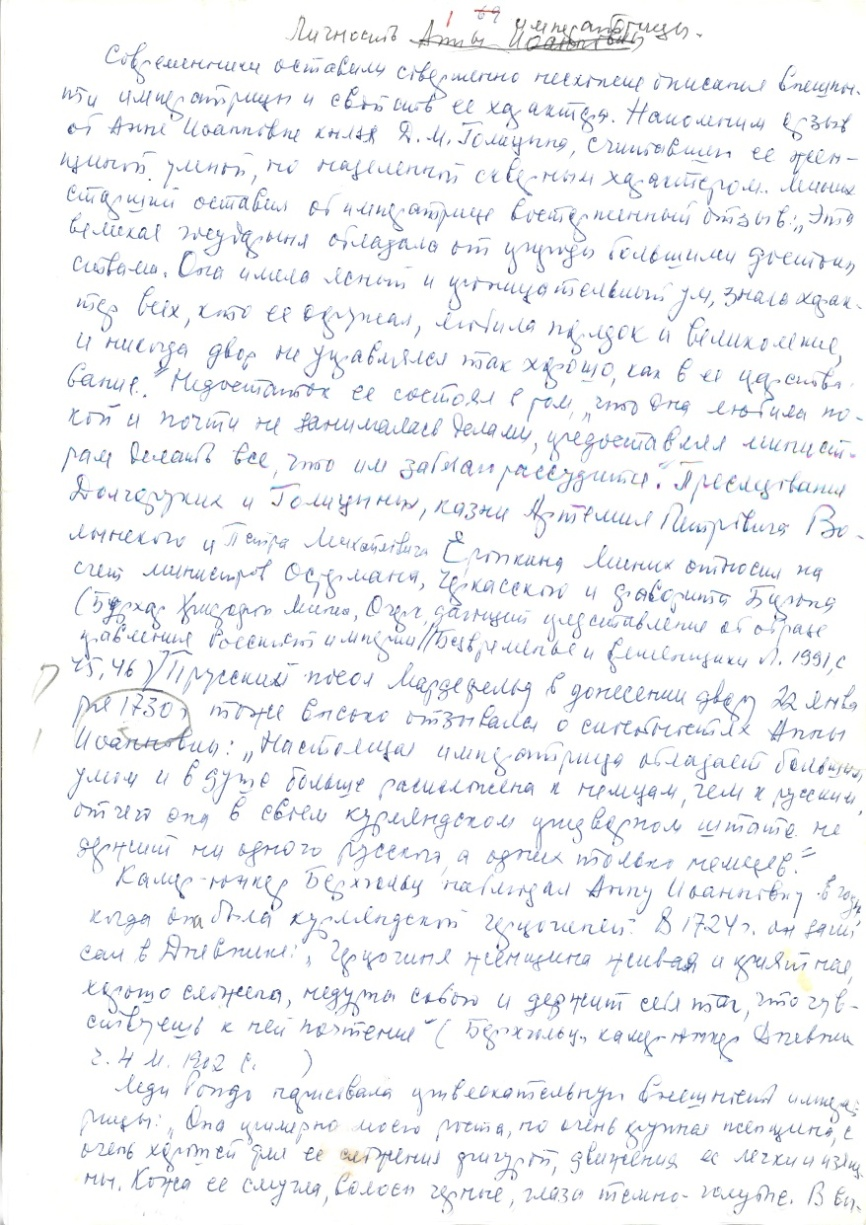 1 69
Личность Анны Иоанновны императрицы.
Современники оставили совершенно несхожие описания внешно-
сти императрицы и свойств ее характера. Напомним отзыв
об Анне Иоанновне князя Д. М. Голицына, считавшего ее жен-
щиной умной, но наделенной скверным характером. Миних
старший оставил об императрице восторженный отзыв: „Эта
великая государыня обладала от природы большими достоин
ствами. Она имела ясный и проницательный ум, знала харак-
тер всех, кто ее окружал, любила порядок и великолепие,
и никогда двор не управлялся так хорошо, как в ее царство-
вание." Недостаток ее состоял в том, „что она любила по-
кой и почти не занималась делами, предоставляя минист-
рам делать все, что им заблагорассудится". Преследования
Долгоруких и Голицыных, казни Артемия Петровича Во-
лынского и Петра Михайловича Еропкина Миних относил на
счет министров Остермана, Черкасского и фаворита Бирона
(Бурхард Христофор Миних, Очерк, дающий представление об образе
правления Российской империи // Безвременье и временщики Л. 1991, с
45, 46) Прусский посол Мардефельд в донесении двору 22 янва
ря 1730 г тоже высоко отзывался о способностях Анны
Иоанновны: „Настоящая императрица обладает большим
умом и в душе больше расположена к немцам, чем к русским,
отчего она в своем курляндском придворном штате не
держит ни одного русского, а одних только немцев."
Камер-юнкер Берхгольц наблюдал Анну Иоанновну в годы
когда она была курляндской герцогиней. В 1724 г. он запи
сал в Дневнике: „Герцогиня женщина живая и приятная,
хорошо сложена, недурна собою и держит себя так, что чув-
ствуешь к ней почтение" (Берхгольц камер-юнкер Дневник
ч. 4 М. 1902 с. )
Леди Рондо нарисовала привлекательную внешность императ
рицы: „Она примерно моего роста, но очень крупная женщина, с
очень хорошей для ее сложения фигурой, движения ее легки и изящ
ны. Кожа ее смугла, волосы черные, глаза темно-голубые. В вы-